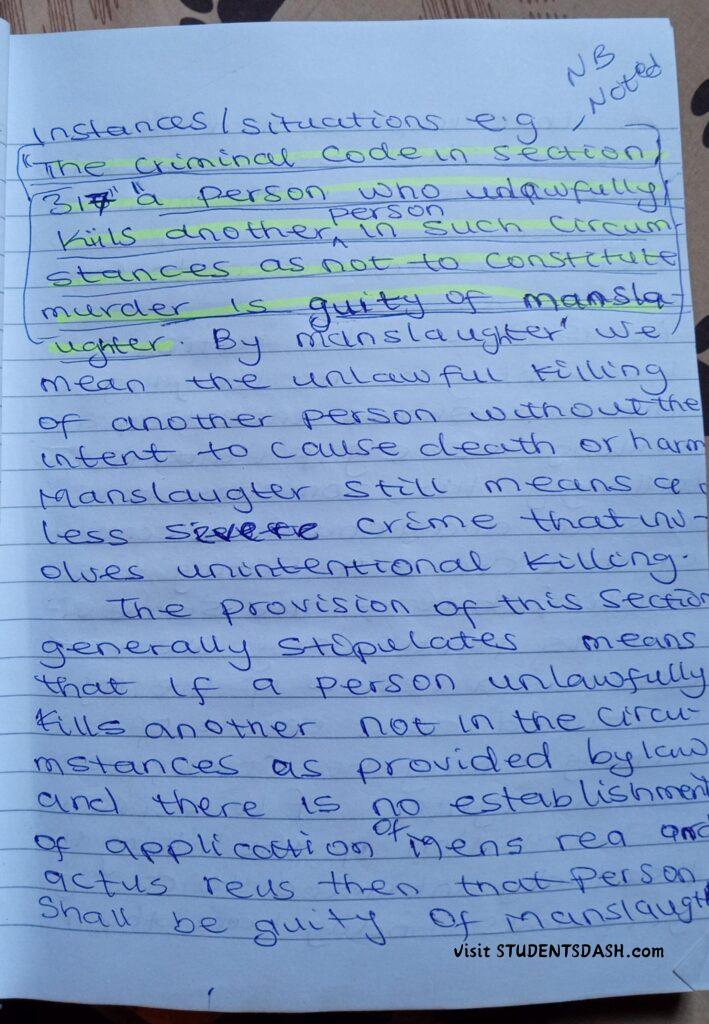 NB
Noted
Instances/situations e.g
"The criminal Code in section
317 "a person who unlawfully
kills another person in such circum-
stances as not to constitute
murder is guity of mansla-
ughter. By manslaughter" we
mean the unlawful killing
of another person without the
intent to cause death or harm
Manslaugter still means a
less severe crime that inv-
olves unintentional killing.
The provision of this section
generally stipulates means
that if a person unlawfully
kills another not in the circu-
mstances as provided by law
and there is no establishment
of application of mens rea and
actus reus then that person
shall be guity of manslaugh
visit STUDENTSDASH.com